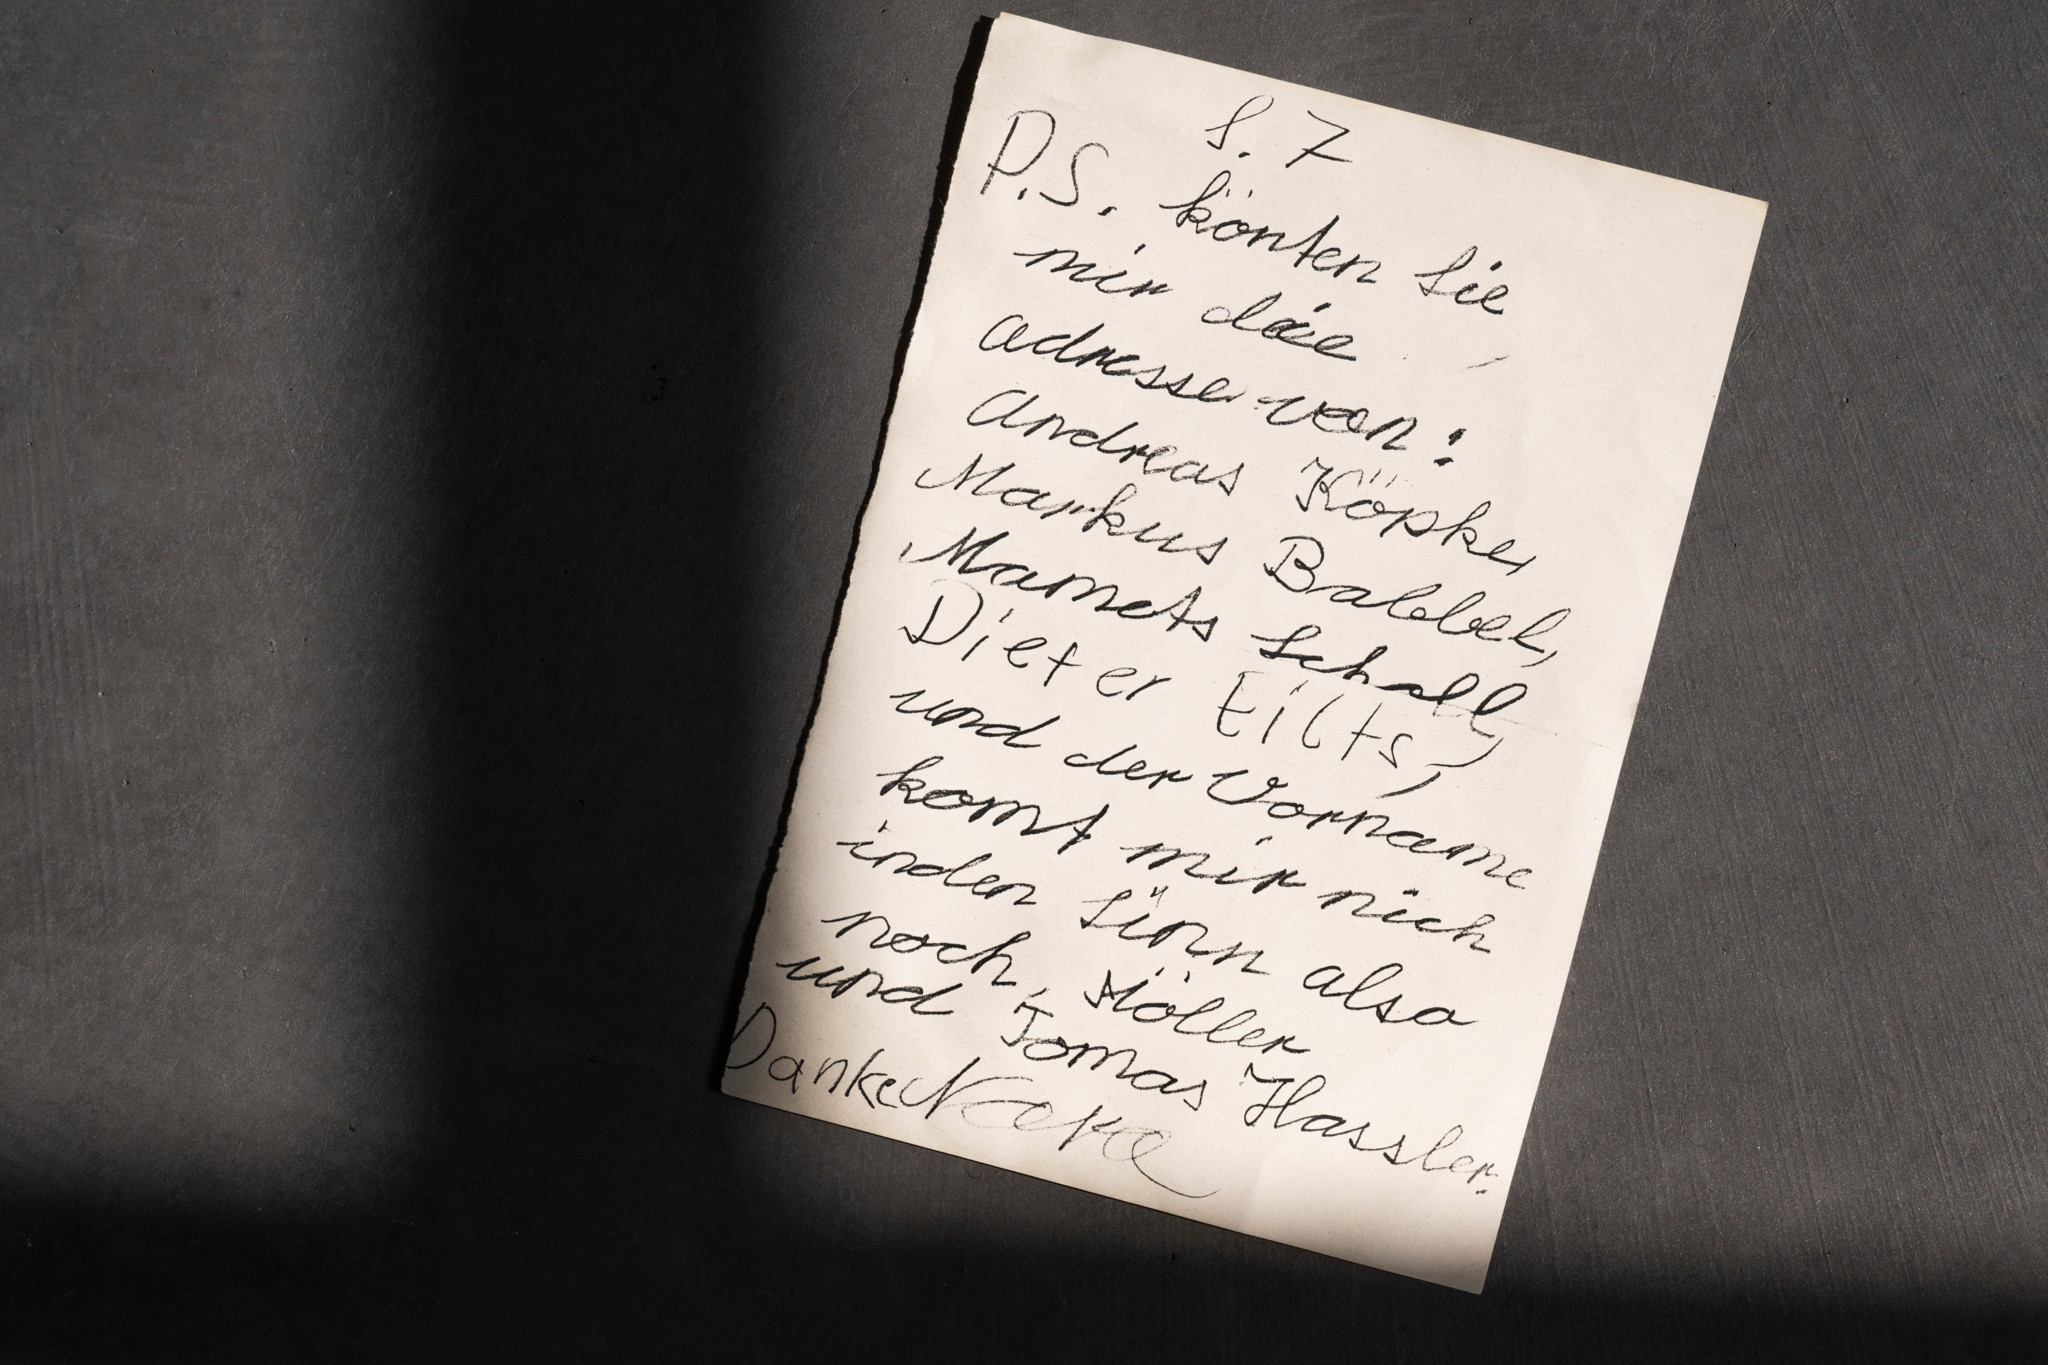 S. 7
P.S. könten Sie
mir die
adresse von:
Andreas Köpke,
Markus Babbel,
Mamets Scholl,
Dieter Eilts,
und der Vorname
komt mir nich
inden Sinn also
noch, Möller
und Tomas Hassler.
Danke